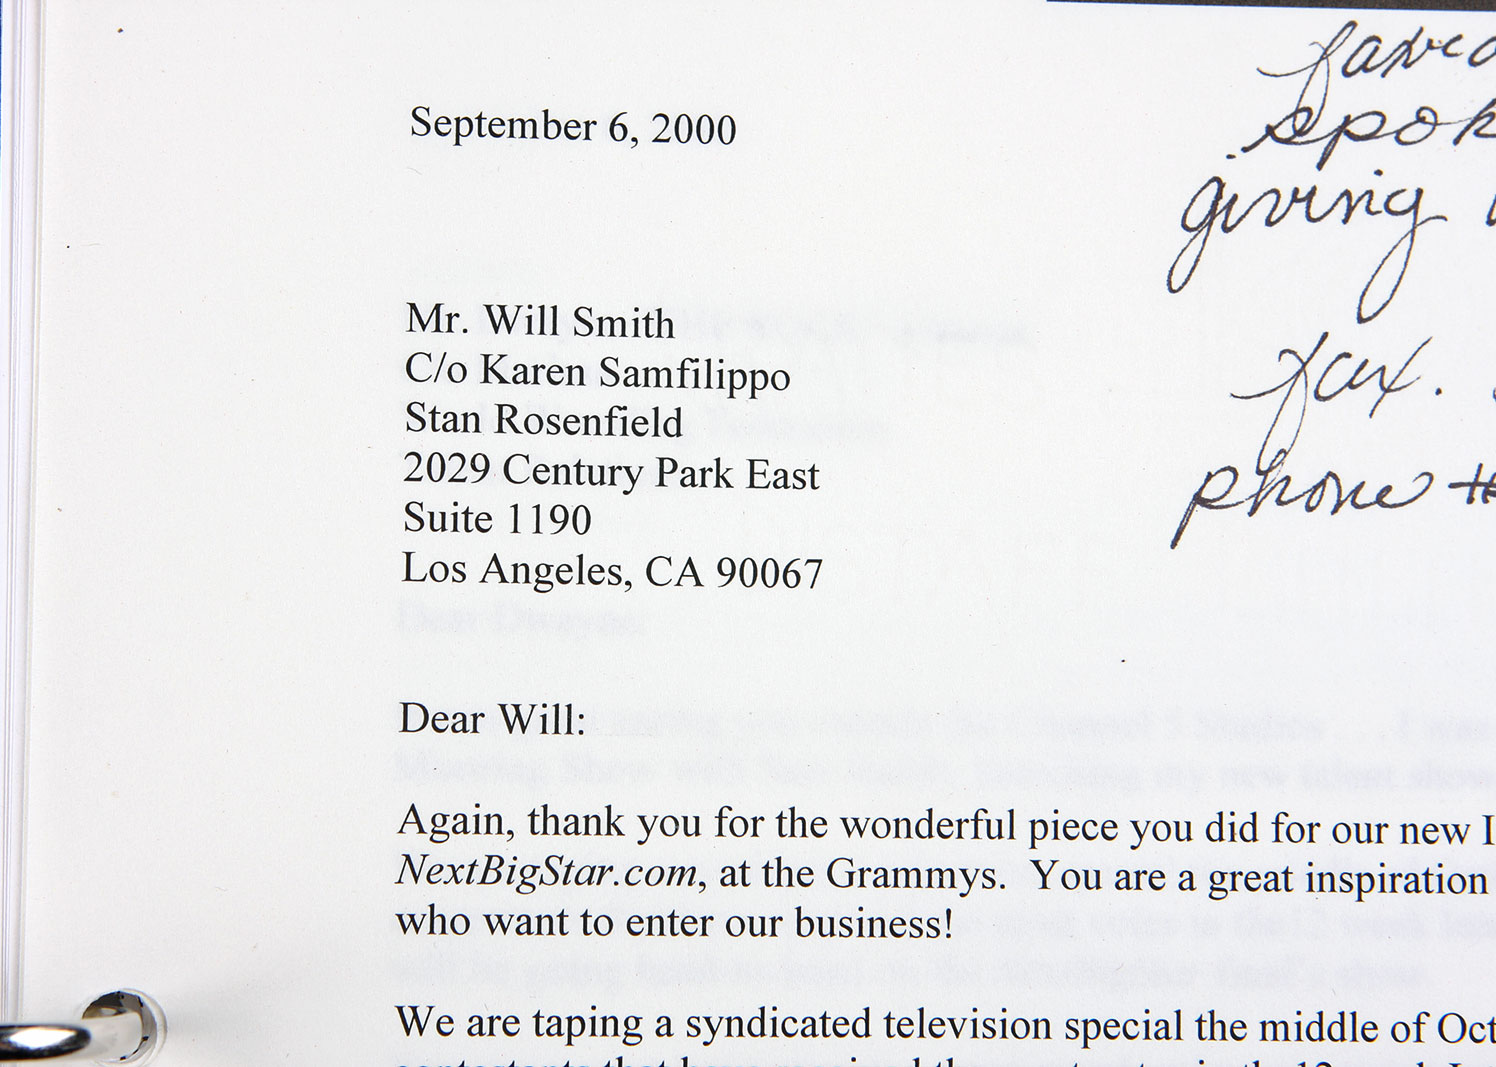 September 6, 2000
giving
Mr. Will Smith
C/o Karen Samfilippo
Stan Rosenfield
2029 Century Park East
Suite 1190
Los Angeles, CA 90067
fax.
phone #
Dear Will:
Again, thank you for the wonderful piece you did for our new I
NextBigStar.com, at the Grammys. You are a great inspiration
who want to enter our business!
We are taping a syndicated television special the middle of Oct